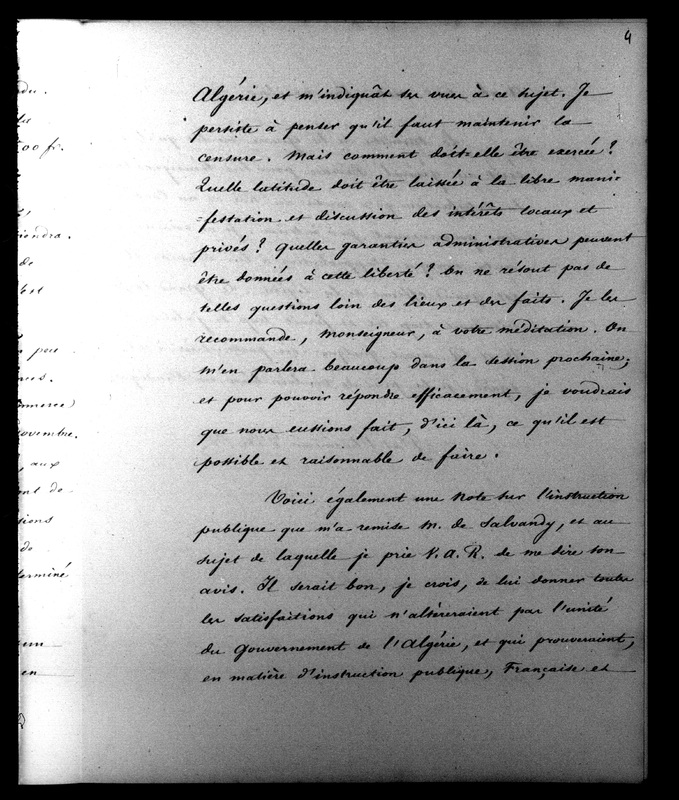 4
du.
la
00 fr.
iendra.
de
est
peu
ces.
mmerce)
ovembre.
, aux
ent de
tions
de
terminé
en
Algérie, et m'indiquât ses vues à ce sujet. Je
persiste à penser qu'il faut maintenir la
censure. Mais comment doit-elle être exercée?
Quelle latitude doit être laissée à la libre mani=
=festation et discussion des intérêts locaux et
privés? Quelles garanties administratives peuvent
être données à cette liberté? On ne résout pas de
telles questions loin des lieux et des faits. Je les
recommande, Monseigneur, à votre méditation. On
m'en parlera beaucoup dans la session prochaine;
et pour pouvoir répondre efficacement, je voudrais
que nous eussions fait, d'ici là, ce qu'il est
possible et raisonnable de faire.
Voici également une Note sur l'instruction
publique que m'a remise M. de Salvandy, et au
sujet de laquelle je prie V. A. R. de me dire son
avis. Il serait bon, je crois, de lui donner toutes
les satisfaitions qui n'altéreraient pas l'unité
du Gouvernement de l'Algérie, et qui prouveraient,
en matière d'instruction publique, Française et